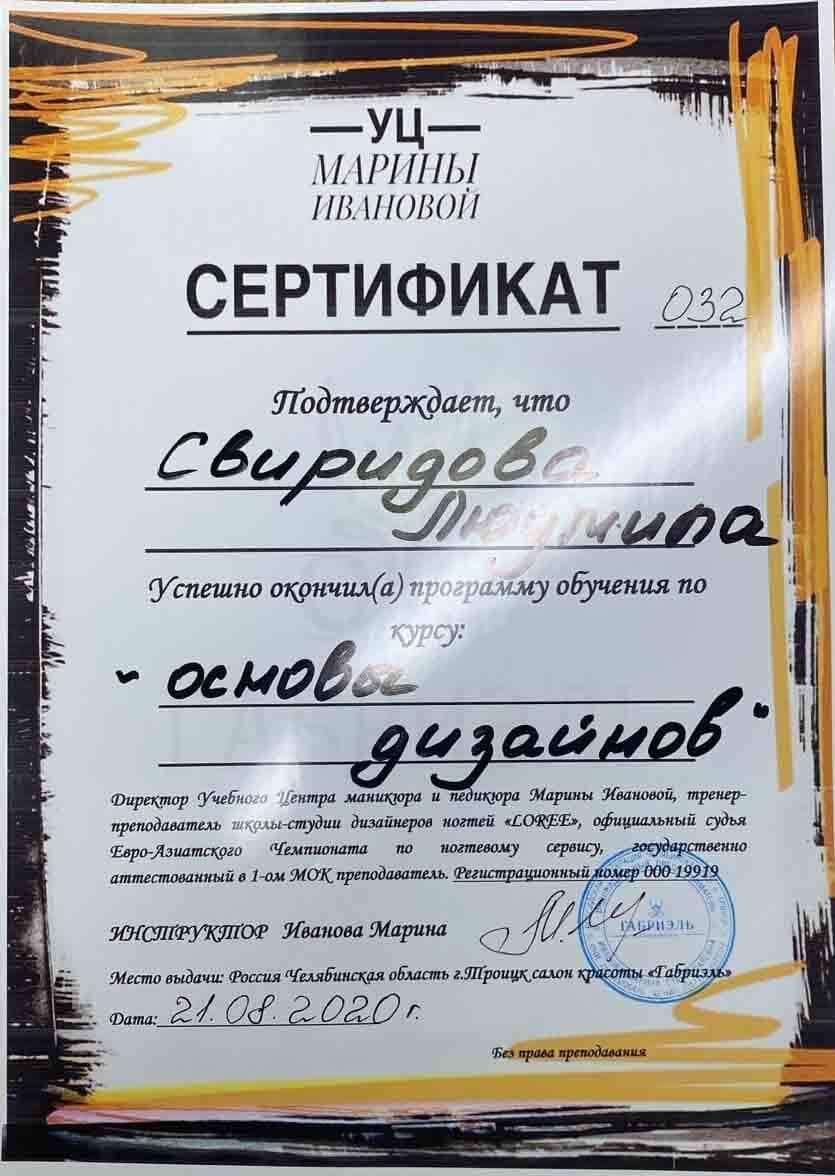 УЦ
МАРИНЫ
ИВАНОВОЙ
СЕРТИФИКАТ 032
Подтверждает, что
Свиридова
Людмила
Успешно окончил(а) программу обучения по
курсу:
"основы
дизайнов"
Директор Учебного Центра маникюра и педикюра Марины Ивановой, тренер-
преподаватель школы-студии дизайнеров ногтей «LOREE», официальный судья
Евро-Азиатского Чемпионата по ногтевому сервису, государственно
аттестованный в 1-ом МОК преподаватель. Регистрационный номер 000 19919
ИНСТРУКТОР Иванова Марина
ГАБРИЭЛЬ
Место выдачи: Россия Челябинская область г.Троицк салон красоты «Габриэль»
Дата: 21.08.2020 г.
Без права преподавания